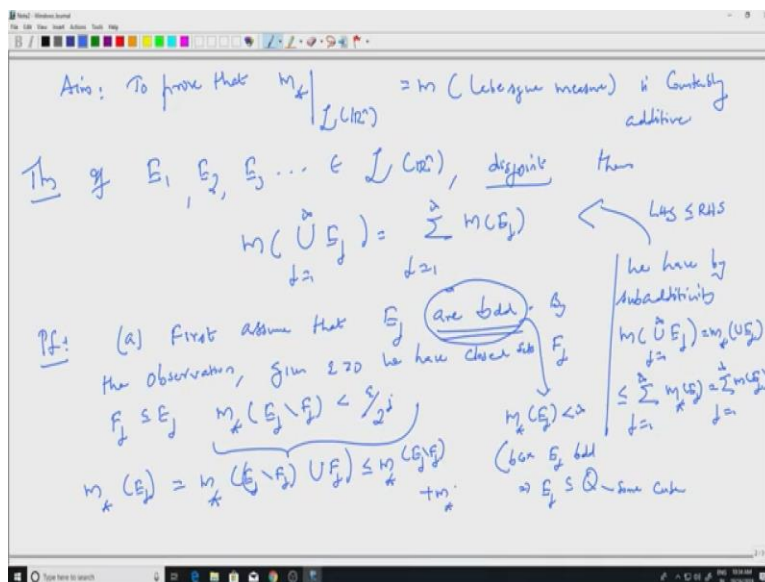 Note2 - Windows Journal
File Edit View Insert Actions Tools Help
Aim: To prove that m_*|_{L(ℝⁿ)} = m (Lebesgue measure) is Countably
additive
Thm If E_1, E_2, E_3 ... ∈ L(ℝⁿ), disjoint then
m(∪_{j=1}^∞ E_j) = Σ_{j=1}^∞ m(E_j)
LHS ≤ RHS
we have by
subadditivity
m(∪_{j=1}^∞ E_j) = m_*(∪E_j)
≤ Σ_{j=1}^∞ m_*(E_j) = Σ_{j=1}^∞ m(E_j)
Pf: (a) First assume that E_j are bdd. By
the observation, given ε>0 we have closed sets F_j
F_j ⊆ E_j m_*(E_j \ F_j) < ε/2^j
m_*(E_j) < ∞
(bcz E_j bdd
⇒ E_j ⊆ Q - some cube
m_*(E_j) = m_*((E_j \ F_j) ∪ F_j) ≤ m_*(E_j \ F_j)
+ m_*
Type here to search